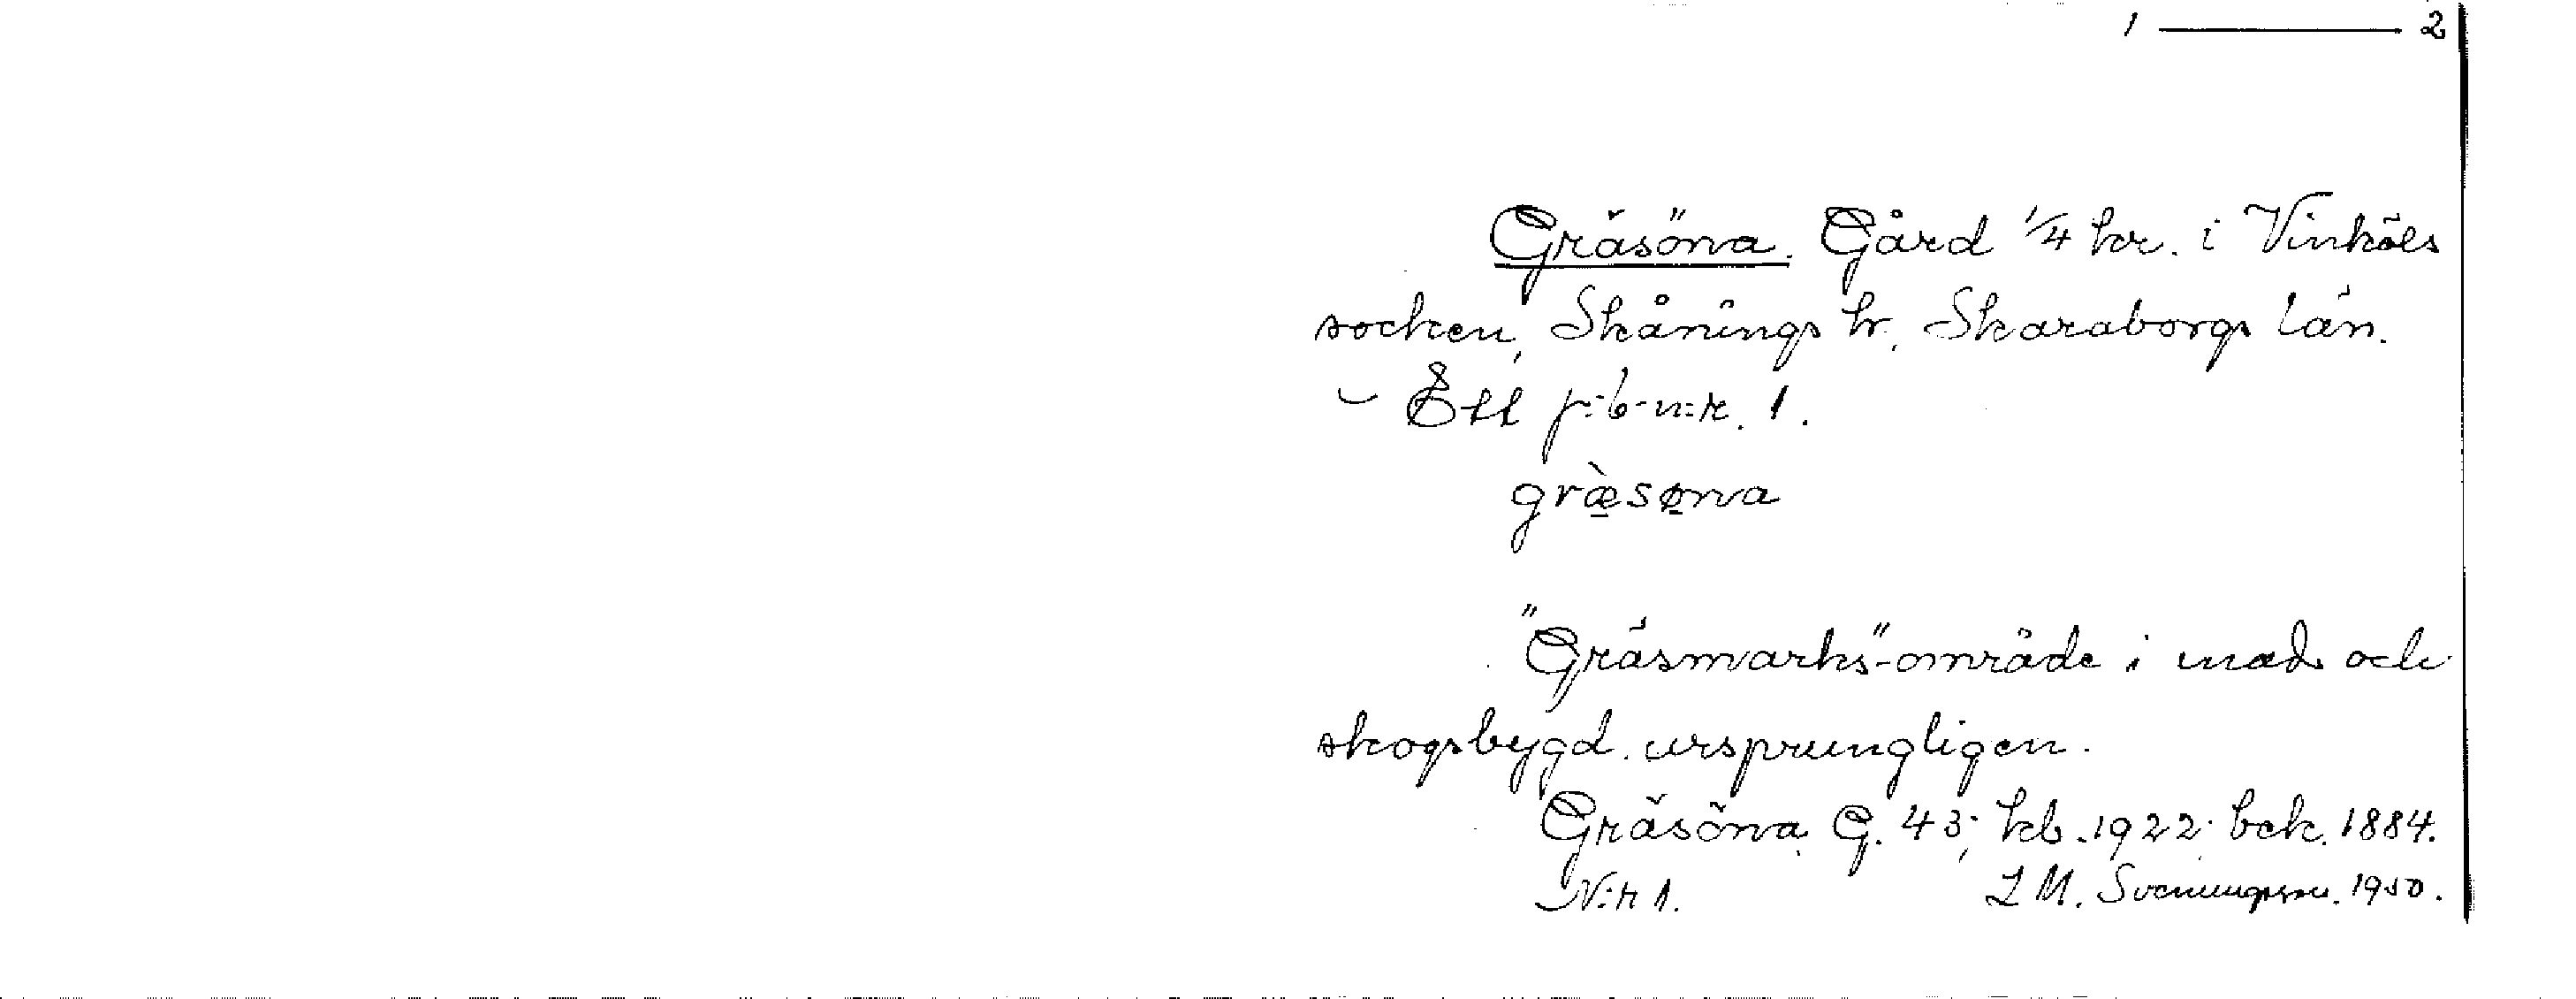 1 ——— 2
Gräsöna. Gård 1/4 hr. i Vinköls
socken, Skånings hr. Skaraborgs län.
– Ett j:b-n:r. 1.
græ̀søna
"Gräsmarks"-område i mad och
skogsbygd. ursprungligen.
Gräsöna G. 43; kb. 1922. bek. 1884.
N:r 1. L M. Svenungsson. 1950.